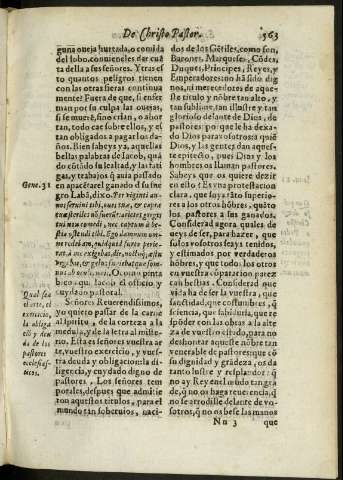 De Christo Pastor. 563
guna oueja hurtada, o comida
del lobo, conuieneles dar cuē
ta della a sus señores. Y tras es
to quantos peligros tienen
con las otras fieras continua
mente? Fuera de que, si enfer
man por su culpa las ouejas,
si se muerē, sino crian, o ahor
tan, todo cae sobre ellos, y es
tan obligados a pagar los da-
ños. Bien sabeys ya, aquellas
bellas palabras de Iacob, quā
do cōtādo su lealtad, y las fati
gas, y trabajos q̄ auia passado
en apacētar el ganado d su sue
gro Labā, dixo. Per viginti an-
Gene. 31
nos seruiui tibi, oues tuæ, & capræ
ui comedi, nec captum à be-
stia ostendi tibi. Ego damnum om-
ne reddebam, quidquid furto perie-
rat, à me exigebas, die, noctuq́; æstu
& gelu, fugiebatque som-
nus ab oculis meis. O como pinta
bien aqui Iacob el officio y
cuydado pastoral.
Señores Reuerendissimos,
yo quiero passar de la carne
al spiritu, de la corteza a la
medula, y de la letra al miste-
rio. Esta es señores vuestra ar
te, vuestro exercicio, y vues-
tra deuda y obligacion: la di-
ligencia, y cuydado digno de
pastores. Los señores tem-
porales, despues que admitie
ron aquestos titulos, para el
mundo tan soberuios, naci-
Qual sea
el arte, el
exercicio,
la obliga
ciō y deu
da de los
pastores
ecclesias-
ticos.
dos de los Gētiles, como son,
Barones, Marqueses, Cōdes,
Duques, Principes, Reyes, y
Emperadores: no hā sido dig
nos, ni merecedores de aques
te titulo y nōbre tan alto, y
tan sublime, tan illustre y tan
glorioso delante de Dios, de
pastores: porque le ha dexa-
do Dios para vosotros: a quiē
Dios, y las gentes dan aques-
te epitecto, pues Dios y los
hombres os llaman pastores.
Sabeys que os quiere dezir
en ello? Es vna protestacion
clara, que soys tāto superio-
res a los otros hōbres, quāto
los pastores a sus ganados.
Considerad agora quales de
ueys de ser, para hazer, que
solos vosotros seays tenidos,
y estimados por verdaderos
hōbres, y que todos los otros
en vuestra cōparacion parez
can bestias. Considerad que
vida ha de ser la vuestra, que
sanctidad, que costumbres, q̄
sciencia, que sabiduria, que re
spōder con las obras a la alte
za de vuestro estado, para no
deshonrar aqueste nōbre tan
venerable de pastores: que cō
su dignidad y grādeza, os da
tanto lustre y resplandor: q̄
no ay Rey en el mūdo tan grā
de, q̄ no os haga reuerencia, q̄
no se arrodille delante de vo-
sotros, q̄ no os bese las manos
Nn 3 que